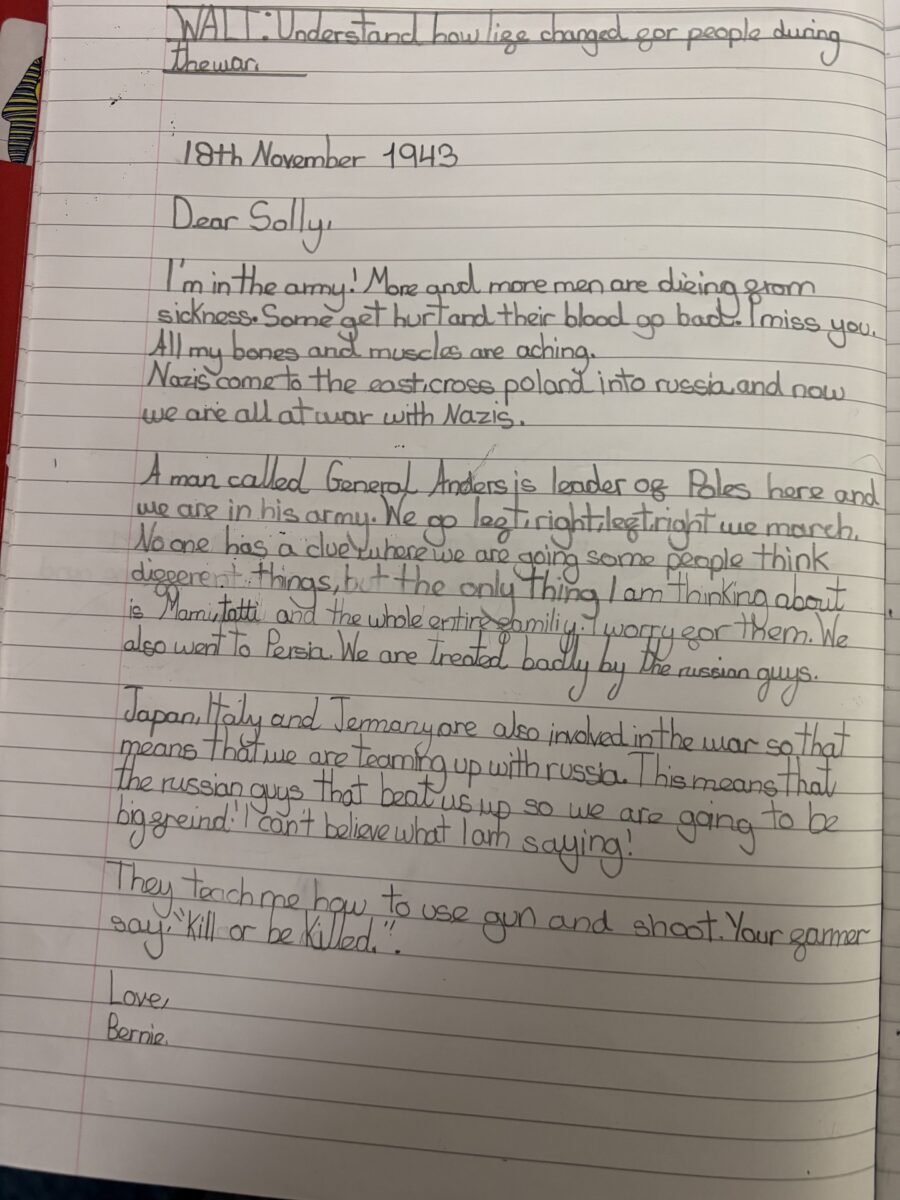 WALT: Understand how life changed for people during
the war.
18th November 1943
Dear Solly,
I'm in the army! More and more men are dieing from
sickness. Some get hurt and their blood go bad. I miss you.
All my bones and muscles are aching.
Nazis come to the east, cross poland into russia and now
we are all at war with Nazis.
A man called General Anders is leader of Poles here and
we are in his army. We go left, right, left, right we march.
No one has a clue where we are going some people think
different things, but the only thing I am thinking about
is Mami, tatti and the whole entire familiy. I worry for them. We
also went to Persia. We are treated badly by the russian guys.
Japan, Italy and Jermany are also involved in the war so that
means that we are teaming up with russia. This means that
the russian guys that beat us up so we are going to be
big freind! I can't believe what I am saying!
They teach me how to use gun and shoot. Your farmer
say, "Kill or be killed.".
Love,
Bernie.